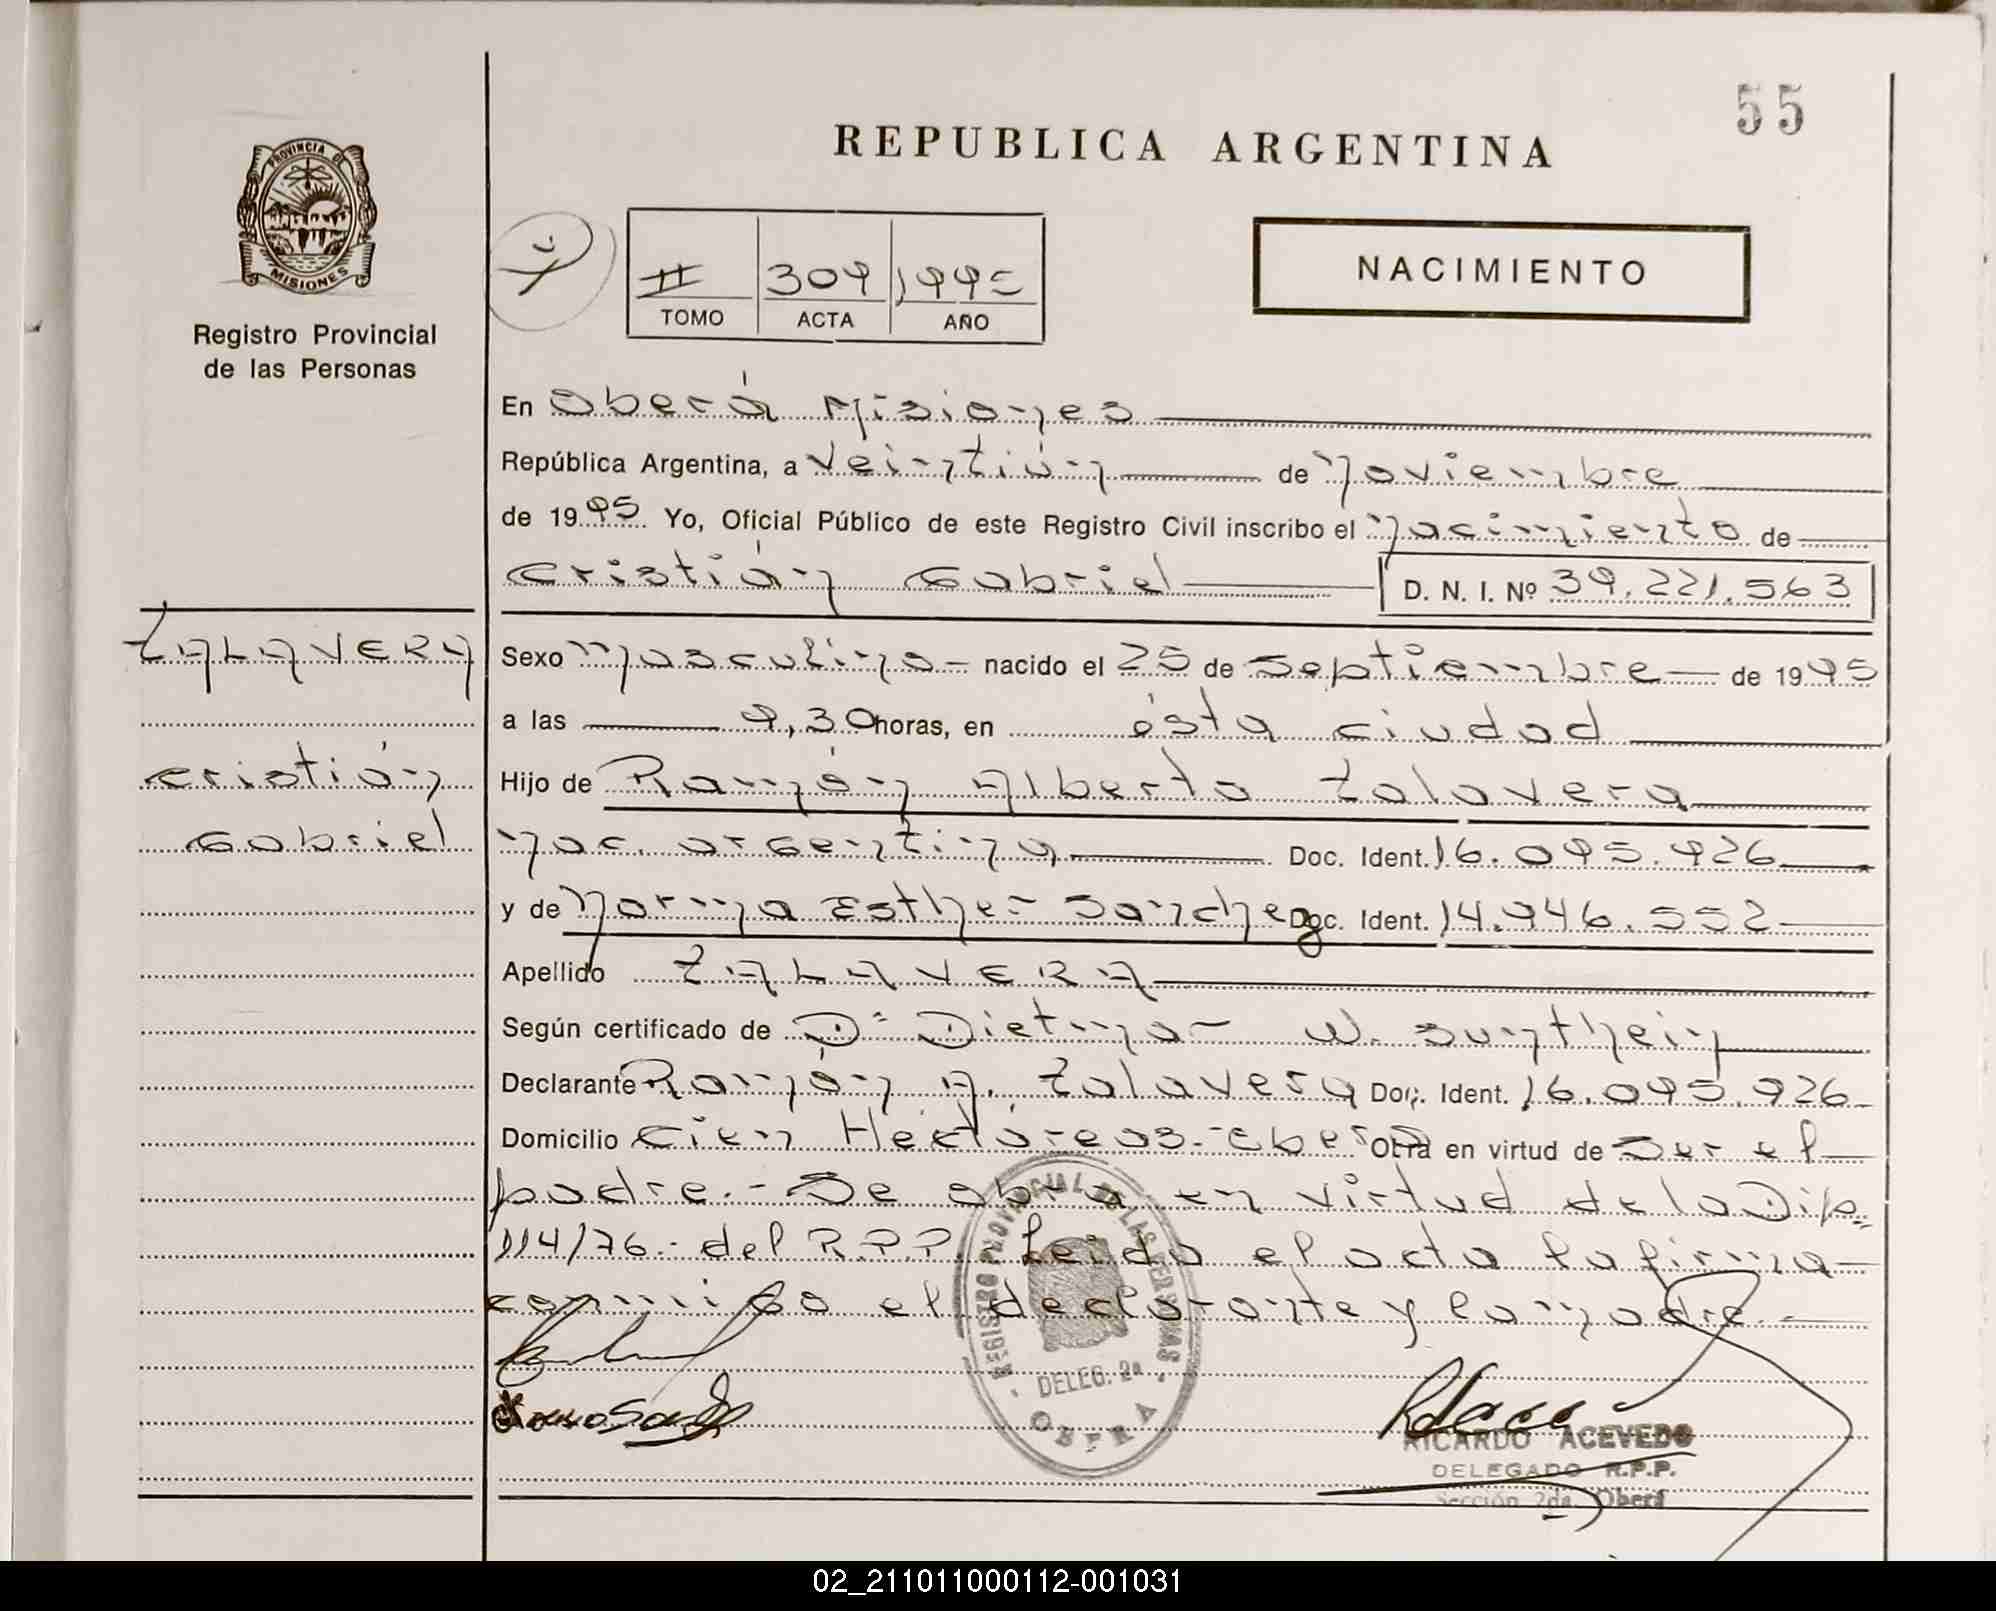 55
REPUBLICA ARGENTINA
PROVINCIA DE
MISIONES
Registro Provincial
de las Personas
II 309 1995
TOMO ACTA AÑO
NACIMIENTO
En Oberá Misiones
República Argentina, a veintiún de noviembre
de 1995 Yo, Oficial Público de este Registro Civil inscribo el nacimiento de
Cristián Gabriel D. N. I. Nº 39.221.563
ZALAVERA
Sexo masculino nacido el 25 de septiembre de 1995
a las 9,30 horas, en ésta ciudad
Cristián
Hijo de Ramón Alberto Zalavera
Gabriel
nac. argentina Doc. Ident. 16.095.926
y de Norma Esther Sanchez Doc. Ident. 14.946.552
Apellido ZALAVERA
Según certificado de Dr Dietmar W. Sunthein
Declarante Ramón A. Zalavera Doc. Ident. 16.095.926
Domicilio Cien Hectáreas.-Oberá Otra en virtud de ser el
padre.- Se en virtud de la Disp.
114/76.- del R.P.P. Leida el acta la firma
conmigo el declarante y la madre.-
REGISTRO PROVINCIAL DE LAS PERSONAS
DELEG. 2a
OBERA
RICARDO ACEVEDO
DELEGADO R.P.P.
Sección 2da. Oberá
02_211011000112-001031